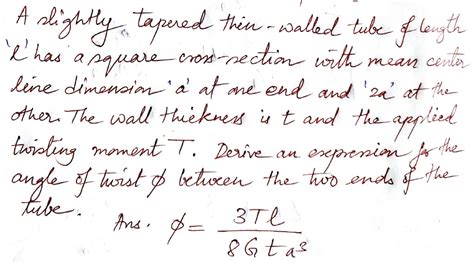 A slightly tapered thin-walled tube of length
'l' has a square cross-section with mean center
line dimension 'a' at one end and '2a' at the
other. The wall thickness is t and the applied
twisting moment T. Derive an expression for the
angle of twist φ between the two ends of the
tube.
Ans. φ = 3Tl / 8Gta³